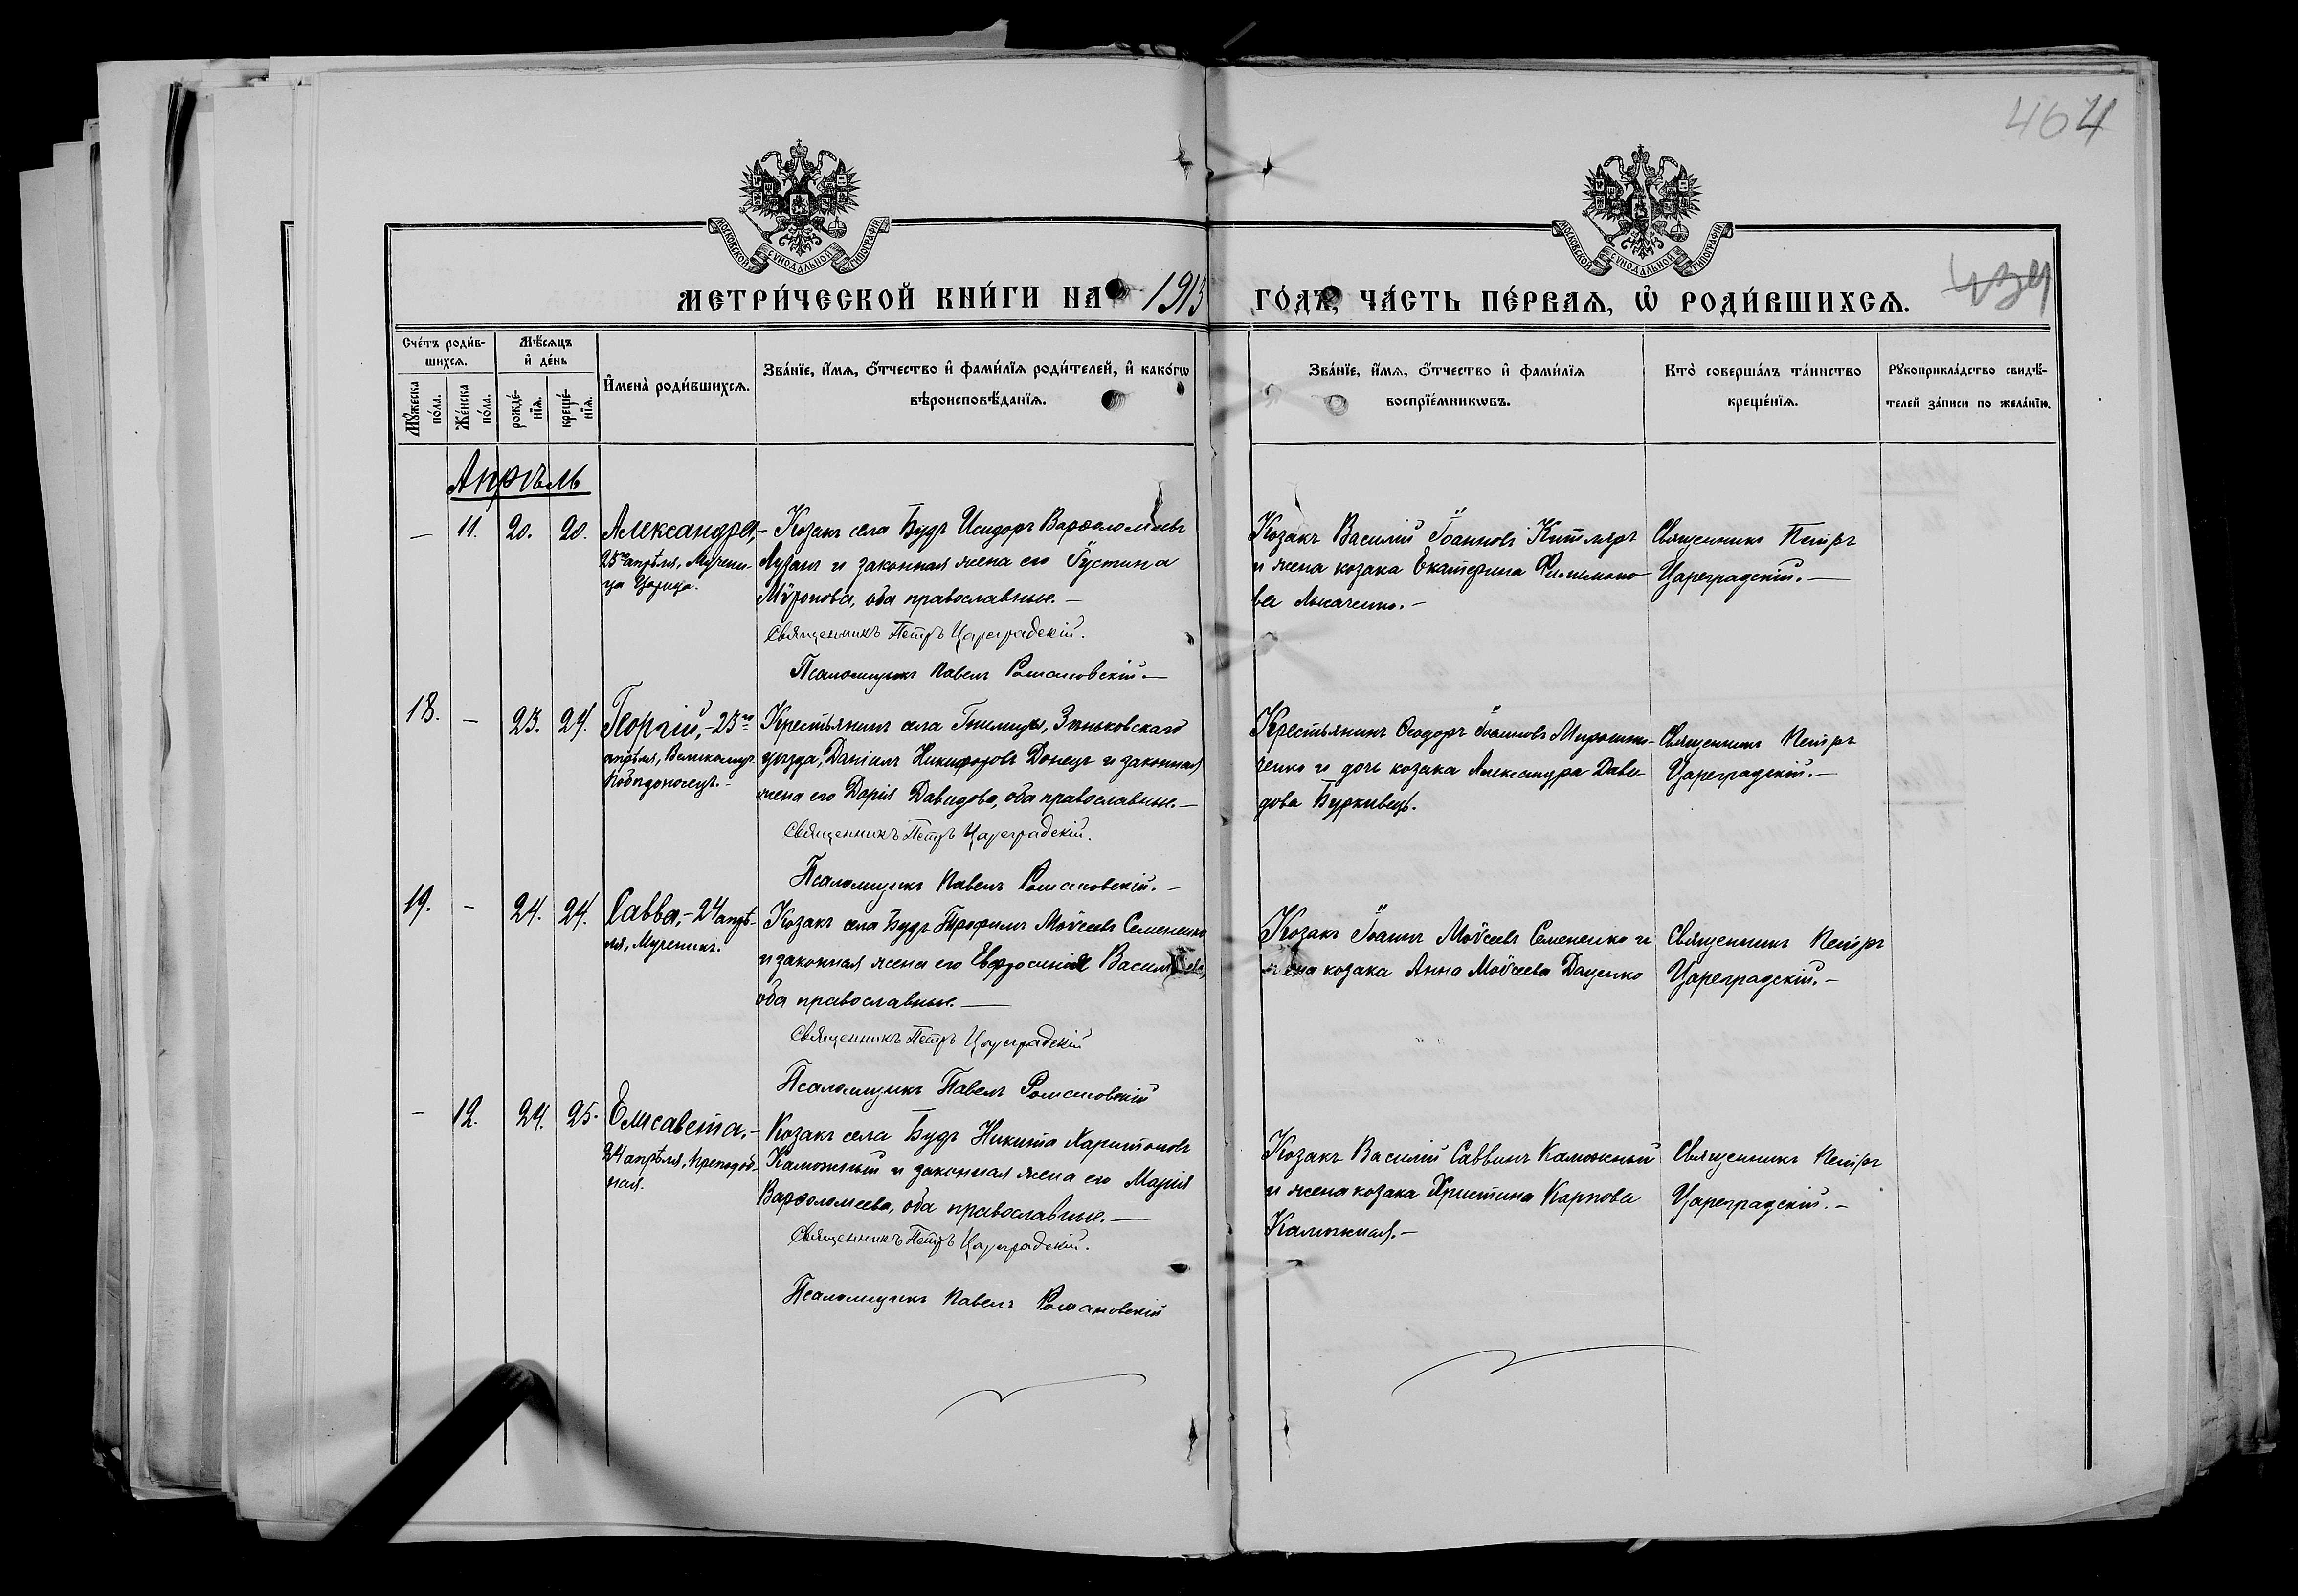 464
434
МОСКОВСКОЙ СѴНОДАЛЬНОЙ ТИПОГРАФІИ
МОСКОВСКОЙ СѴНОДАЛЬНОЙ ТИПОГРАФІИ
МЕТРИ́ЧЕСКОЙ КНИ́ГИ НА 1913 ГО́ДЪ, ЧА́СТЬ ПЕ́РВАЯ, Ѡ҆ РОДИ́ВШИХСЯ.
Сче́тъ роди́в-
шихся.
Мꙋ́жеска
по́ла.
Же́нска
по́ла.
Мѣ́сяцъ
и҆ де́нь
рожде́-
нїя.
креще́-
нїя.
И҆мена̀ роди́вшихся.
Зва́нїе, и҆́мя, о҆́тчество и҆ фами́лїя роди́телей, и҆ како́гѡ
вѣроисповѣ́данїя.
Зва́нїе, и҆́мя, о҆́тчество и҆ фами́лїя
воспрїе́мникѡвъ.
Кто̀ соверша́лъ та́инство
креще́нїя.
Рꙋкоприкла́дство свидѣ́-
телей за́писи по жела́нїю.
Апрѣль
— 11. 20. 20. Александра,-
23го апрѣля, Мучени-
ца Царица.
Козакъ села Будъ Исидоръ Варѳоломѣевъ
Лузанъ и законная жена его Іустина
Мѵронова, оба православные.—
Священникъ Петръ Цареградскій.
Псаломщикъ Павелъ Романовскій.—
Козакъ Василій Іоанновъ Китляръ
и жена козака Екатерина Филимоно-
ва
Священникъ Петръ
Цареградскій.—
18. — 23. 24. Георгій,-23го
апрѣля, Великомуч.
Побѣдоносецъ.-
Крестьянинъ села Гнилицы, Зѣньковскаго
уѣзда, Даніилъ Никифоровъ Донецъ и законная
жена его Дарія Давидова, оба православные.—
Священникъ Петръ Цареградскій.
Псаломщикъ Павелъ Романовскій.—
Крестьянинъ Ѳеодоръ Іоанновъ Мирошни-
ченко и дочь козака Александра Дави-
дова Буркивецъ.
Священникъ Петръ
Цареградскій.—
19. — 24. 24. Савва,-24 апрѣ-
ля, Мученикъ.
Козакъ села Будъ Трофимъ Моѵсеевъ Семененко
и законная жена его Евфросинія Васильева,
оба православные.—
Священникъ Петръ Цареградскій
Псаломщикъ Павелъ Романовскій
Козакъ Іоаннъ Моѵсеевъ Семененко и
жена козака Анна Моѵсеева Даценко
Священникъ Петръ
Цареградскій.—
— 12. 24. 25. Елисавета,-
24 апрѣля, Преподоб-
ная.
Козакъ села Будъ Никита Харитоновъ
Калюжный и законная жена его Марія
Варѳоломеева, оба православные.—
Священникъ Петръ Цареградскій.
Псаломщикъ Павелъ Романовскій
Козакъ Василій Саввинъ Калюжный
и жена козака Христина Карпова
Калюжная.—
Священникъ Петръ
Цареградскій.—